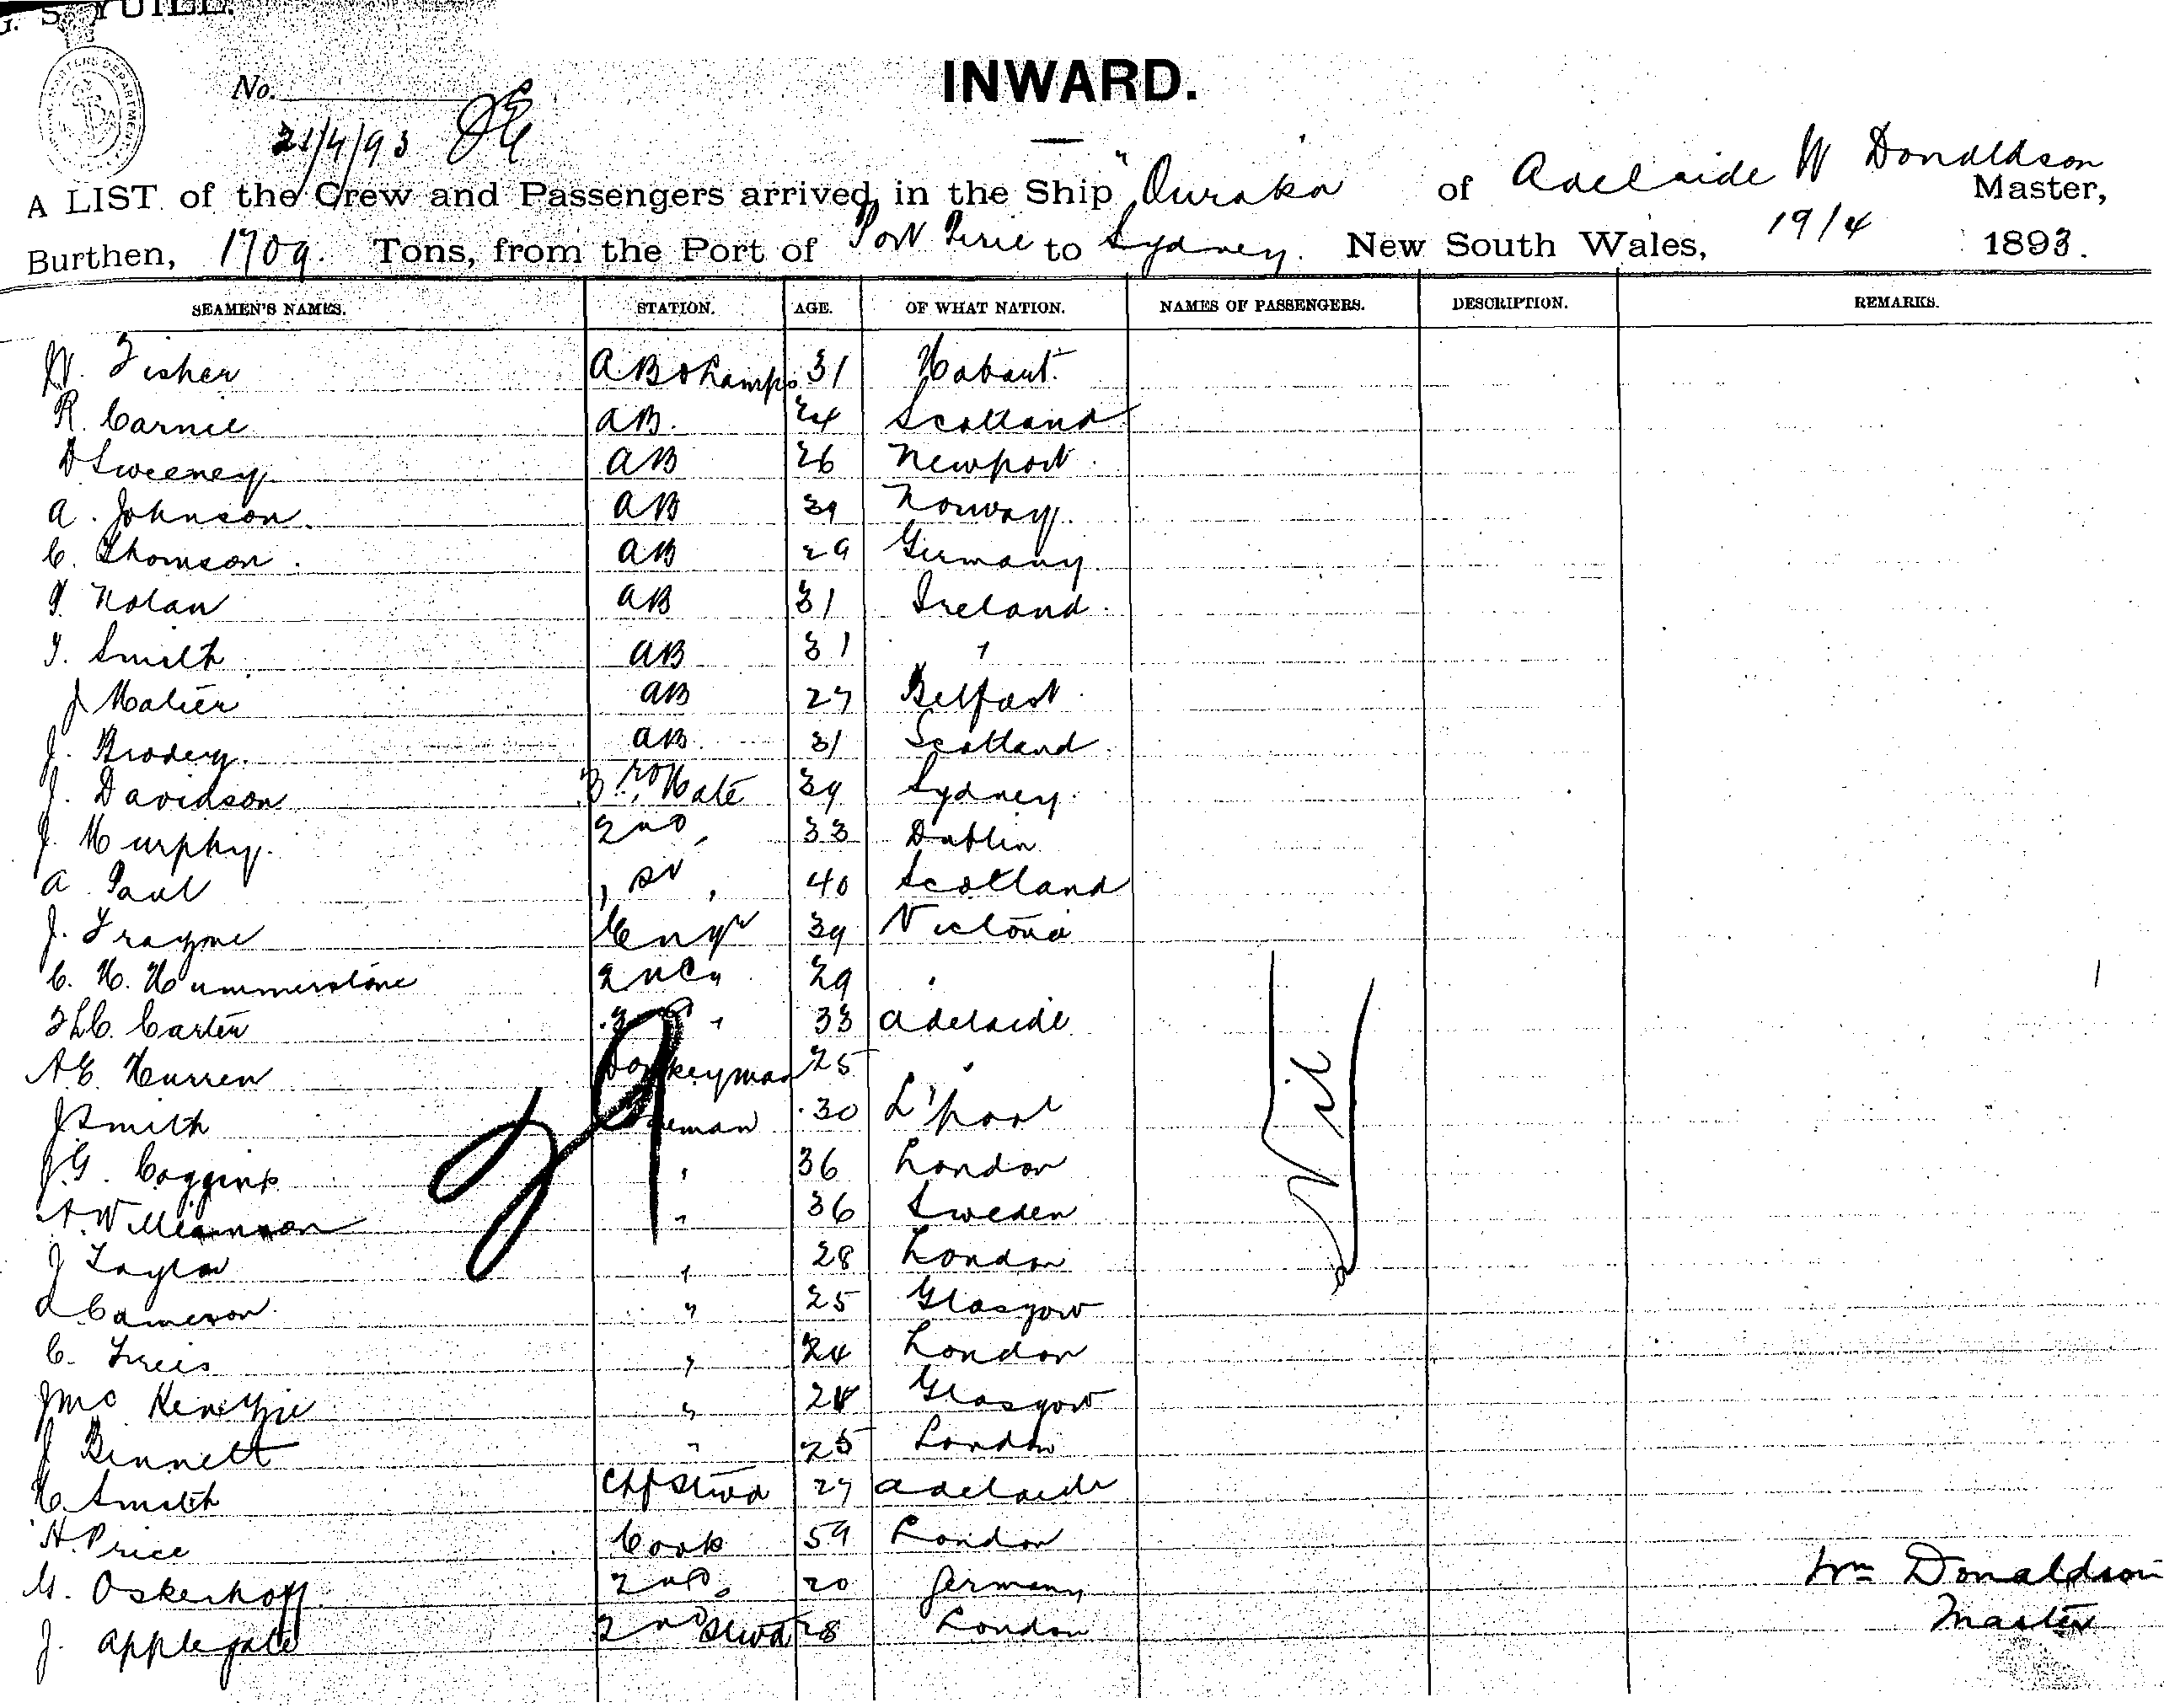 G. S. YUILL.
No.
INWARD.
21/4/93
A LIST of the Crew and Passengers arrived in the Ship "Ouraka of Adelaide W Donaldson Master,
Burthen, 1709. Tons, from the Port of Port Pirie to Sydney. New South Wales, 19/4 1893.
SEAMEN'S NAMES. STATION. AGE. OF WHAT NATION. NAMES OF PASSENGERS. DESCRIPTION. REMARKS.
W. Fisher AB & Lamps 31 Hobart.
R. Carnie AB. 24 Scotland
D Sweeney AB 26 Newport
A. Johnson. AB 39 Norway.
C. Thomson. AB 29 Germany
Nolan AB 31 Ireland.
Smith AB 31 "
J Maher AB 27 Belfast
J. Brodery. AB. 31 Scotland
J. Davidson 3rd Mate 39 Sydney.
J. Murphy. 2nd " 33 Dublin
A. Paul " " 40 Scotland
J. Frayne C Engr 39 Victoria
C. H. Hummerstone 29 "
Carter 3 " 33 Adelaide
A E Hurren Donkeyman 25 "
J Smith Fireman 30 L'pool
J. G. Coggins " 36 London
A. Williamson " 36 Sweden
J Taylor " 28 London
A Cameron " 25 Glasgow
C. Freis " 24 London
J Mc Kenzie " 24 Glasgow
J Bennett " 25 London
H. Smith Chf Stwd 27 Adelaide
H. Price Cook 59 London
Oskerhoff. 2nd " 20 Germany
J. Applegate 2nd Stwd 28 London
Nil
Wm Donaldson
Master